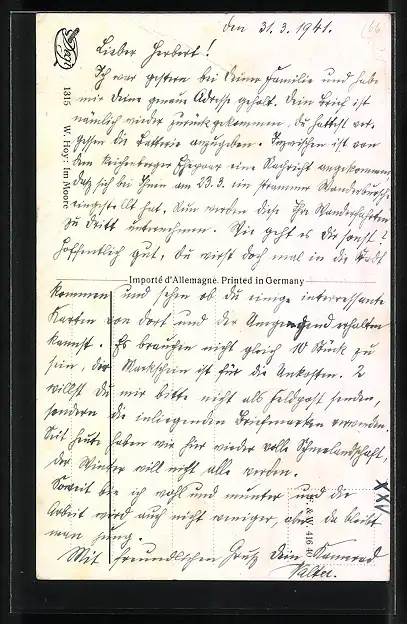 den 31.3.1941.
Lieber Herbert!
Ich war gestern bei Deiner Familie und habe
mir Deine genaue Adresse geholt. Dein Brief ist
nämlich wieder zurückgekommen, Du hattest ver-
gessen die Batterie anzugeben. Inzwischen ist von
dem Reichenberger Ehepaar eine Nachricht angekommen,
daß sich bei Ihnen am 23.3. ein strammer Wanderbursche
eingestellt hat. Nun werden diese Ihre Wanderfahrten
zu dritt unternehmen. Wie geht es Dir sonst?
Hoffentlich gut. Du wirst doch mal in die Stadt
1315 W. Hoy: Im Moore
Importé d'Allemagne. Printed in Germany
kommen und sehen ob Du einige interessante
Karten von dort und der Umgegend erhalten
kannst. Es brauchen nicht gleich 10 Stück zu
sein, der Markschein ist für die Unkosten.
willst Du mir bitte nicht als Feldpost senden,
sondern die inliegenden Briefmarken verwenden.
Seit heute haben wir hier wieder volle Schneelandschaft,
der Winter will nicht alle werden.
Soweit bin ich wohl und munter und die
Arbeit wird auch nicht weniger, aber da bleibt
man jung.
Mit freundlichen Gruß Dein Kamerad
Walter.
XXV